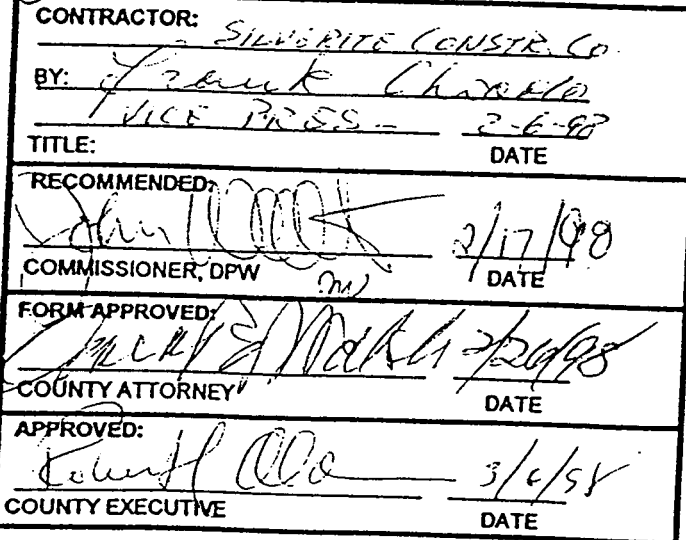 CONTRACTOR: SILVERITE CONSTR. CO.
BY: Frank
VICE PRES - 2-6-98
TITLE: DATE
RECOMMENDED:
John 2/17/98
COMMISSIONER, DPW DATE
FORM APPROVED:
2/26/98
COUNTY ATTORNEY DATE
APPROVED:
Robert 3/6/98
COUNTY EXECUTIVE DATE